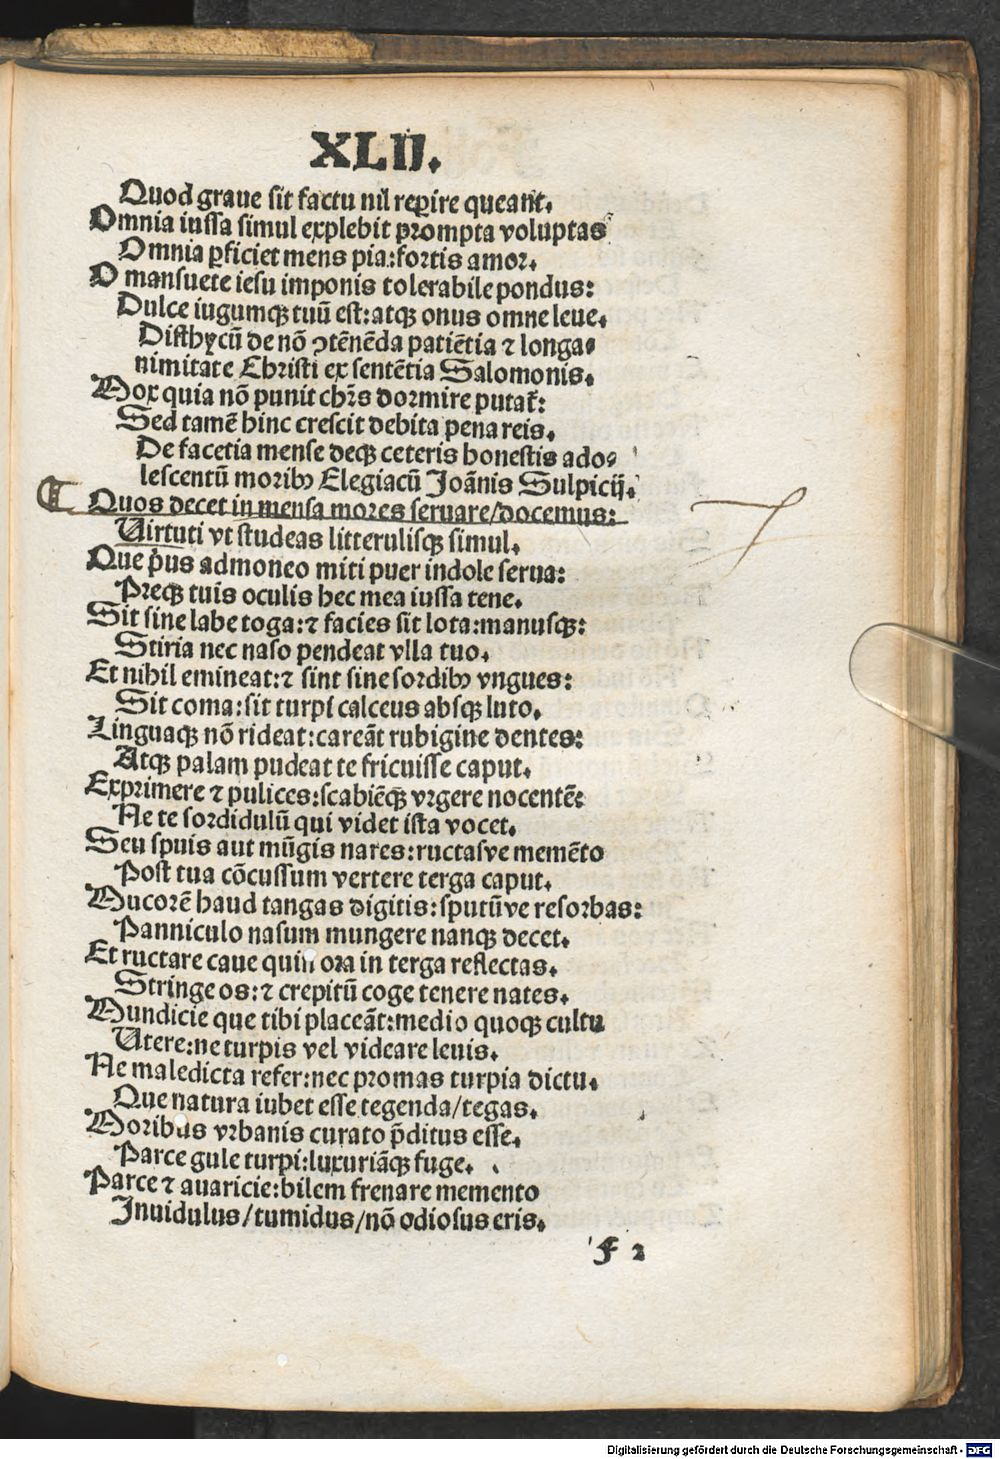 XLII.
Quod graue sit factu nil reꝑire queant.
Omnia iussa simul explebit prompta voluptas
Omnia ꝑficiet mens pia:fortis amor.
O mansuete iesu imponis tolerabile pondus:
Dulce iugumqꝫ tuū est:atqꝫ onus omne leue.
Disthycū de nō ↄtēnēda patiētia ⁊ longa⸗
nimitate Christi ex sentētia Salomonis.
Mox quia nō punit chr̄s dormire putat̄:
Sed tamē hinc crescit debita pena reis.
De facetia mense deqꝫ ceteris honestis ado⸗
lescentū moribꝰ Elegiacū Joānis Sulpicij.
⸿ Quos decet in mensa mores seruare/docemus:
Uirtuti vt studeas litterulisqꝫ simul.
Que p̄us admoneo miti puer indole serua:
Preqꝫ tuis oculis hec mea iussa tene.
Sit sine labe toga:⁊ facies sit lota:manusqꝫ:
Stiria nec naso pendeat vlla tuo.
Et nihil emineat:⁊ sint sine sordibꝰ vngues:
Sit coma:sit turpi calceus absqꝫ luto.
Linguaqꝫ nō rideat:careāt rubigine dentes:
Atqꝫ palam pudeat te fricuisse caput.
Exprimere ⁊ pulices:scabiēqꝫ vrgere nocentē:
Ne te sordidulū qui videt ista vocet.
Seu spuis aut mūgis nares:ructasve memēto
Post tua cōcussum vertere terga caput.
Mucorē haud tangas digitis:sputūve resorbas:
Panniculo nasum mungere nanqꝫ decet.
Et ructare caue quin ora in terga reflectas.
Stringe os:⁊ crepitū coge tenere nates.
Mundicie que tibi placeāt:medio quoqꝫ cultu
Utere:ne turpis vel videare leuis.
Ne maledicta refer:nec promas turpia dictu.
Que natura iubet esse tegenda/tegas.
Moribus vrbanis curato p̄ditus esse.
Parce gule turpi:luxuriāqꝫ fuge.
Parce ⁊ auaricie:bilem frenare memento
Inuidulus/tumidus/nō odiosus eris.
f 2
Digitalisierung gefördert durch die Deutsche Forschungsgemeinschaft - DFG